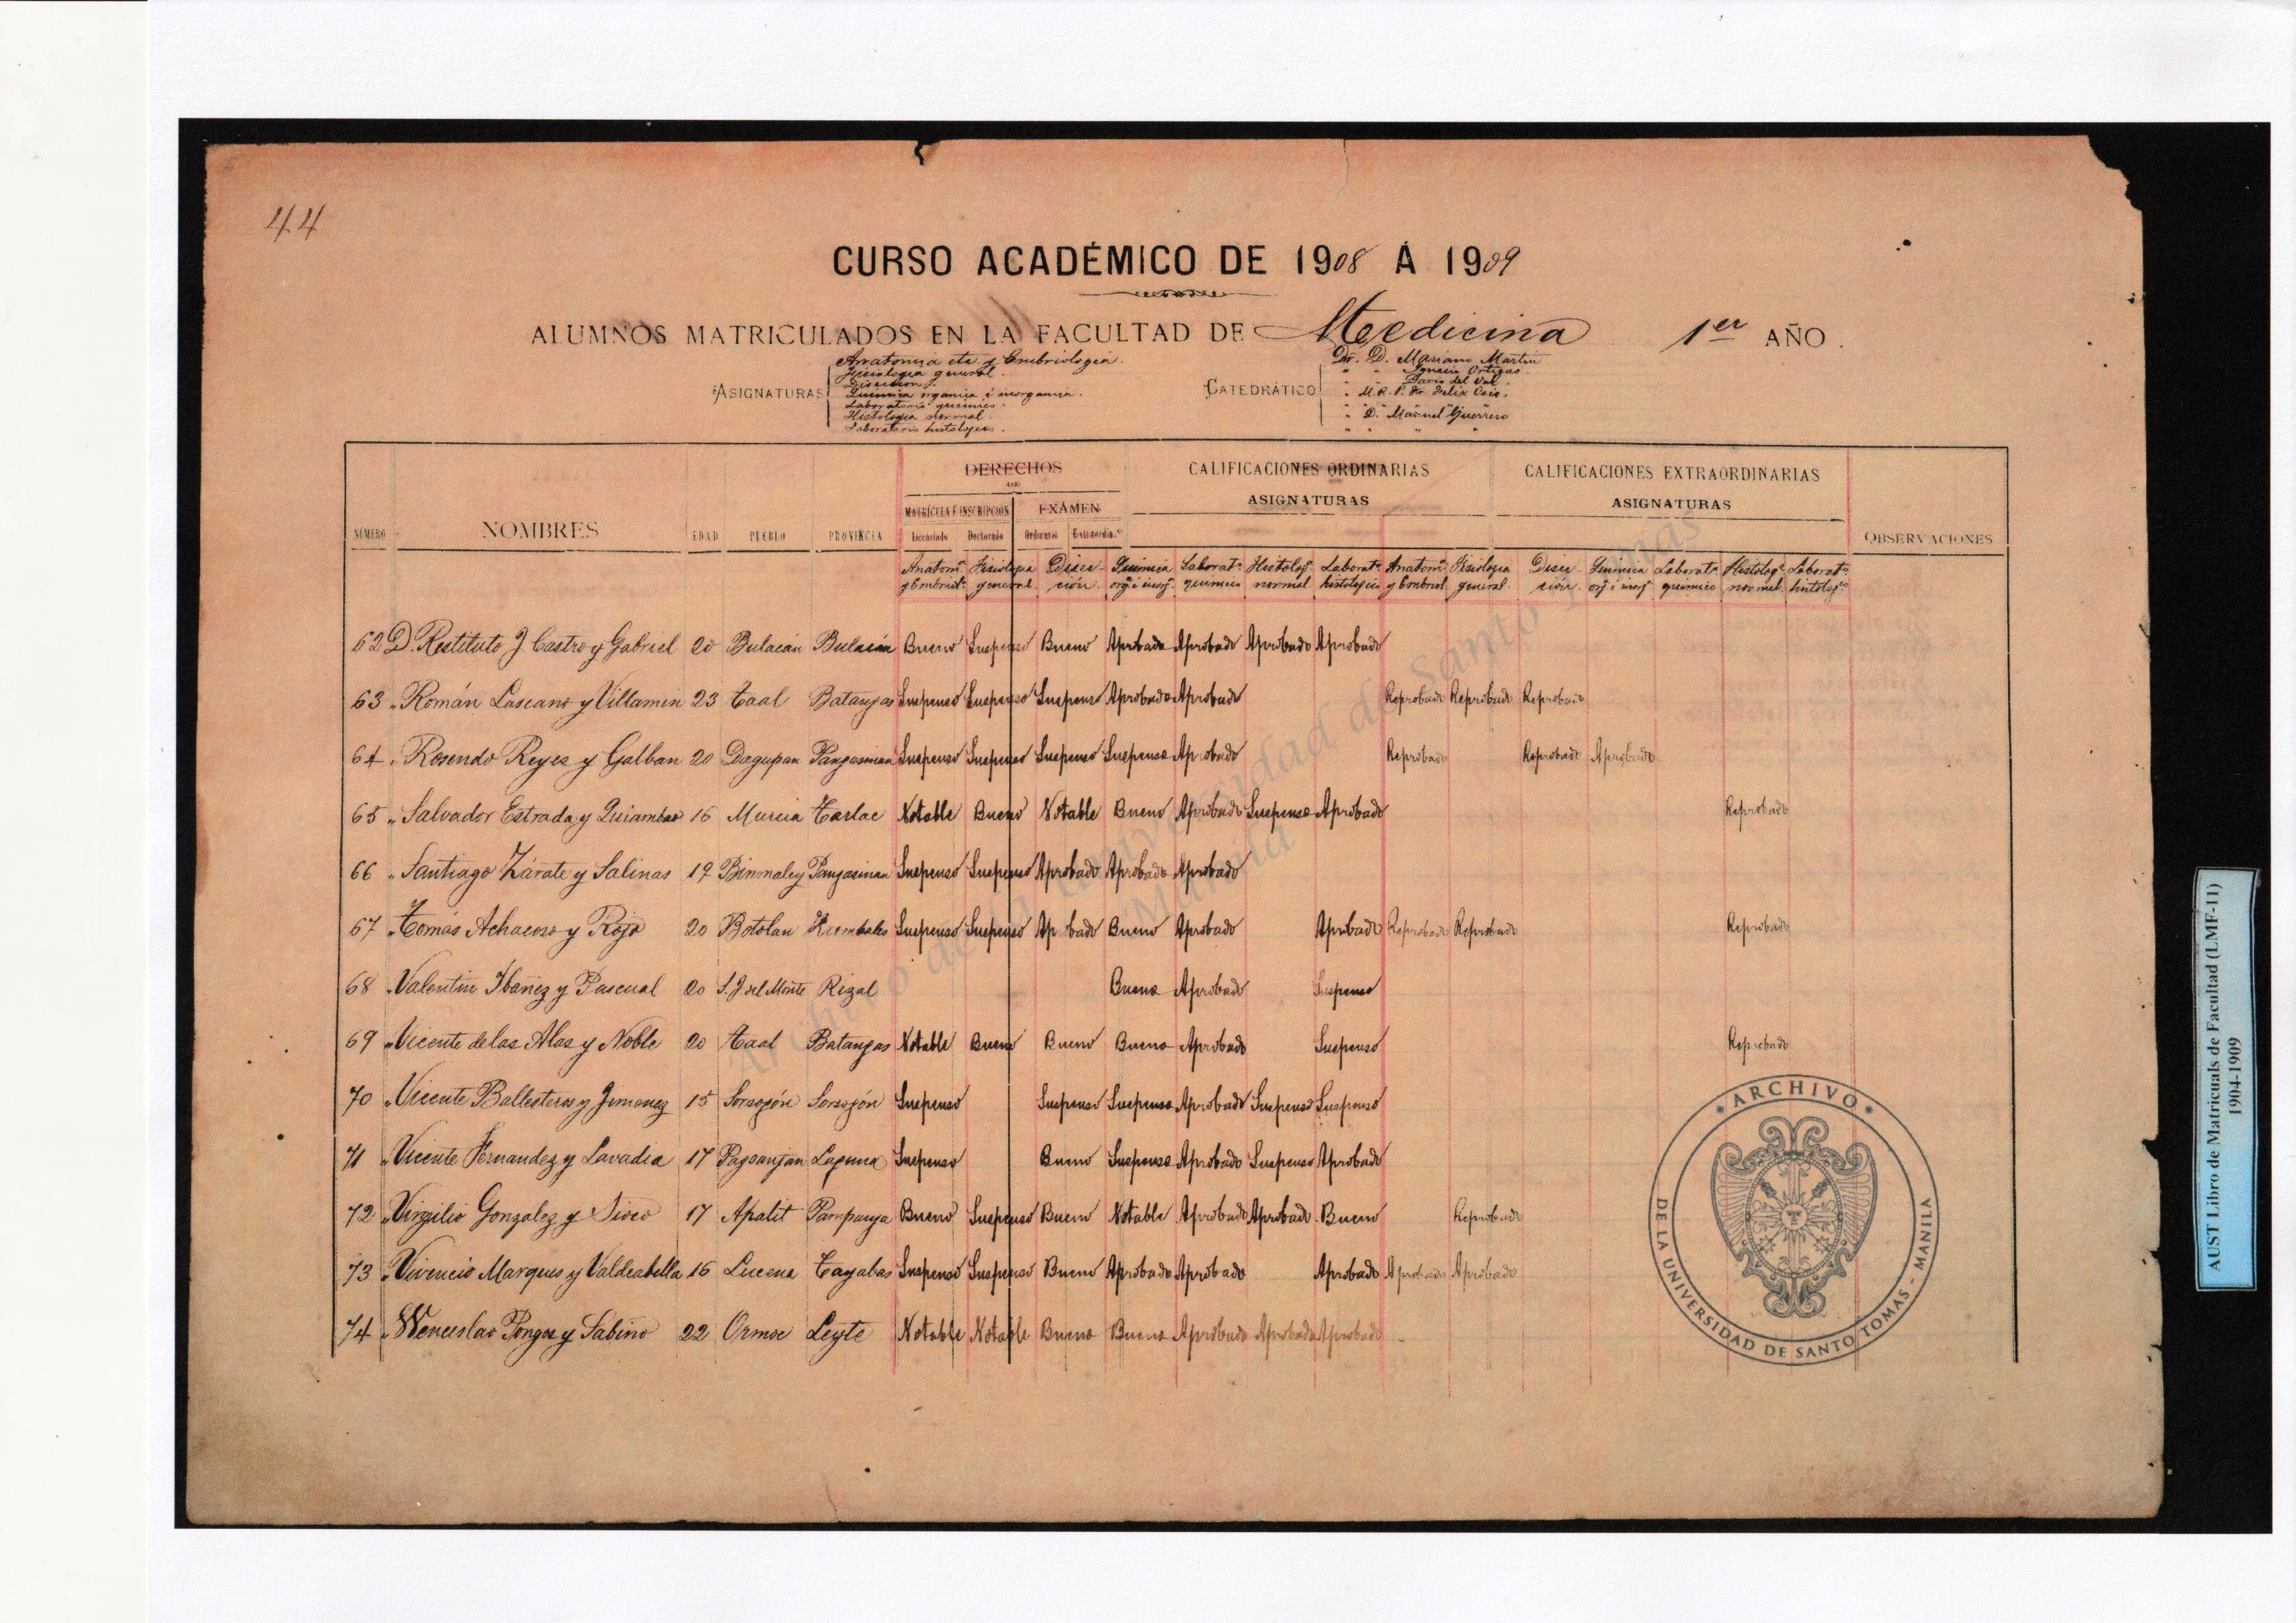 44
CURSO ACADÉMICO DE 1908 Á 1909
ALUMNOS MATRICULADOS EN LA FACULTAD DE Medicina 1er AÑO.
ASIGNATURAS
Anatomia etc y Embriologia.
Fisiologia general.
Diseccion
Quimica organica é inorganica.
Laboratorio quimico.
Histologia normal.
Laboratorio histologico.
CATEDRÁTICO
Dr. D. Mariano Martin
" " Ignacio Ortigas.
" " Dario del Val.
" M. R. P. Fr. Felix Osis.
" D. Manuel Guerrero
" " " "
NÚMERO NOMBRES EDAD PUEBLO PROVINCIA DERECHOS CALIFICACIONES ORDINARIAS CALIFICACIONES EXTRAORDINARIAS OBSERVACIONES
MATRÍCULA É INSCRIPCIÓN EXÁMEN ASIGNATURAS ASIGNATURAS
Licenciado Doctorado Ordinario Extraordin.º
Anatom.ª y Embriol.ª Fisiologia general Disec-ción. Quimica org. é inorg. Laborat.º quimico Histolog.ª normal Laborat.º histologico Anatom.ª y Embriol. Fisiologia general. Disec-ción. Quimica org. é inorg. Laborat.º quimico Histolog.ª normal Laborat.º histolog.co
62 D. Restituto J. Castro y Gabriel 20 Bulacán Bulacán Bueno Suspenso Bueno Aprobado Aprobado Aprobado Aprobado
63 „ Román Lascano y Villamin 23 Taal Batangas Suspenso Suspenso Suspenso Aprobado Aprobado Reprobado Reprobado Reprobado
64 „ Rosendo Reyes y Galban 20 Dagupan Pangasinan Suspenso Suspenso Suspenso Suspenso Aprobado Reprobado Reprobado Aprobado
65 „ Salvador Estrada y Quiambao 16 Murcia Tarlac Notable Bueno Notable Bueno Aprobado Suspenso Aprobado Reprobado
66 „ Santiago Zárate y Salinas 19 Binmaley Pangasinan Suspenso Suspenso Aprobado Aprobado Aprobado
67 „ Tomás Achacoso y Rojo 20 Botolan Zambales Suspenso Suspenso Aprobado Bueno Aprobado Aprobado Reprobado Reprobado Reprobado
68 „ Valentin Ibañez y Pascual 20 S. J. del Monte Rizal Bueno Aprobado Suspenso
69 „ Vicente de las Alas y Noble 20 Taal Batangas Notable Bueno Bueno Bueno Aprobado Suspenso Reprobado
70 „ Vicente Ballesteros y Jimenez 15 Sorsogón Sorsogón Suspenso Suspenso Suspenso Aprobado Suspenso Suspenso
71 „ Vicente Fernandez y Lavadia 17 Pagsanjan Laguna Suspenso Bueno Suspenso Aprobado Suspenso Aprobado
72 „ Virgilio Gonzalez y Sioco 17 Apalit Pampanga Bueno Suspenso Bueno Notable Aprobado Aprobado Bueno Reprobado
73 „ Vivencio Marques y Valdeabella 16 Lucena Tayabas Suspenso Suspenso Bueno Aprobado Aprobado Aprobado Aprobado Aprobado
74 „ Wenceslao Pongos y Sabino 22 Ormoc Leyte Notable Notable Bueno Bueno Aprobado Aprobado Aprobado
Archivo de la Universidad de Santo Tomas
Manila
ARCHIVO
DE LA UNIVERSIDAD DE SANTO TOMAS - MANILA
AUST Libro de Matriculas de Facultad (LMF-11)
1904-1909